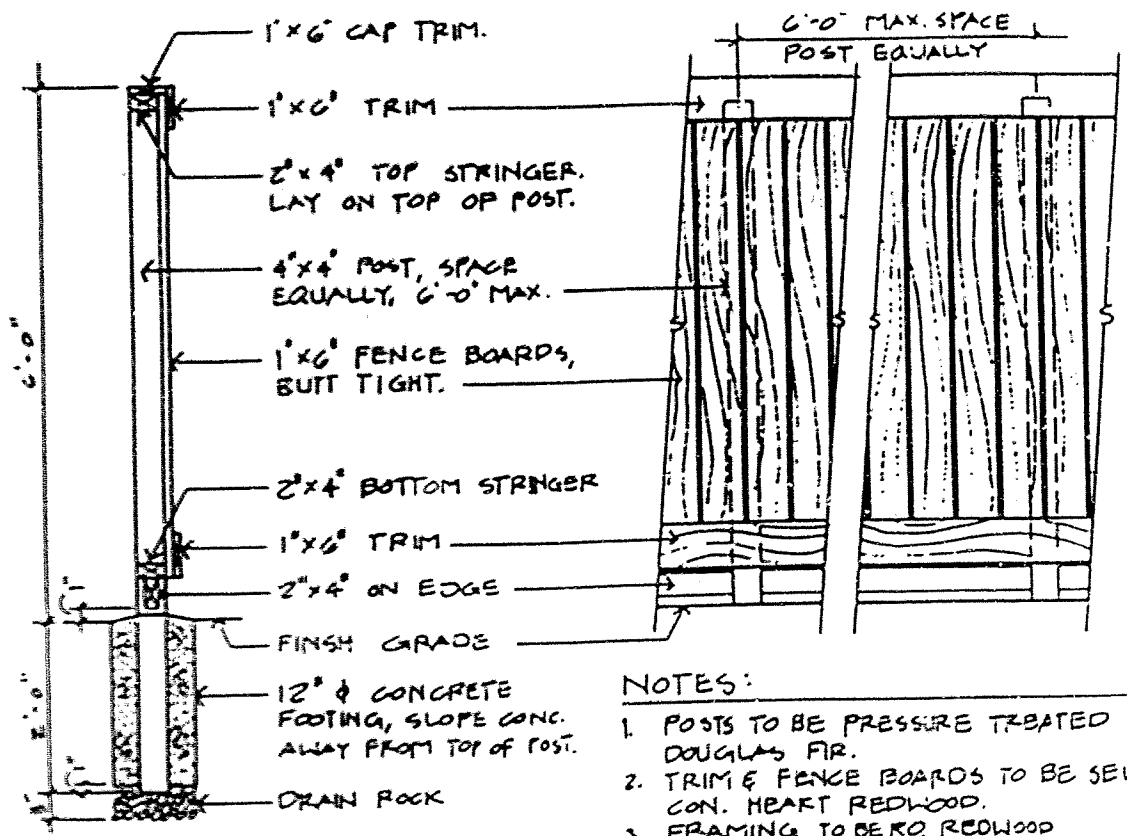 1" × 6" CAP TRIM.
1" × 6" TRIM
2" × 4" TOP STRINGER.
LAY ON TOP OF POST.
4" × 4" POST, SPACE
EQUALLY, 6'-0" MAX.
1" × 6" FENCE BOARDS,
BUTT TIGHT.
2" × 4" BOTTOM STRINGER
1" × 6" TRIM
2" × 4" ON EDGE
FINSH GRADE
12" ϕ CONCRETE
FOOTING, SLOPE CONC.
AWAY FROM TOP OF POST.
DRAIN ROCK
6'-0"
6'-0" MAX. SPACE
POST EQUALLY
NOTES:
1. POSTS TO BE PRESSURE TREATED
DOUGLAS FIR.
2. TRIM & FENCE BOARDS TO BE SEL
CON. HEART REDWOOD.
3. FRAMING TO BE RO. REDWOOD